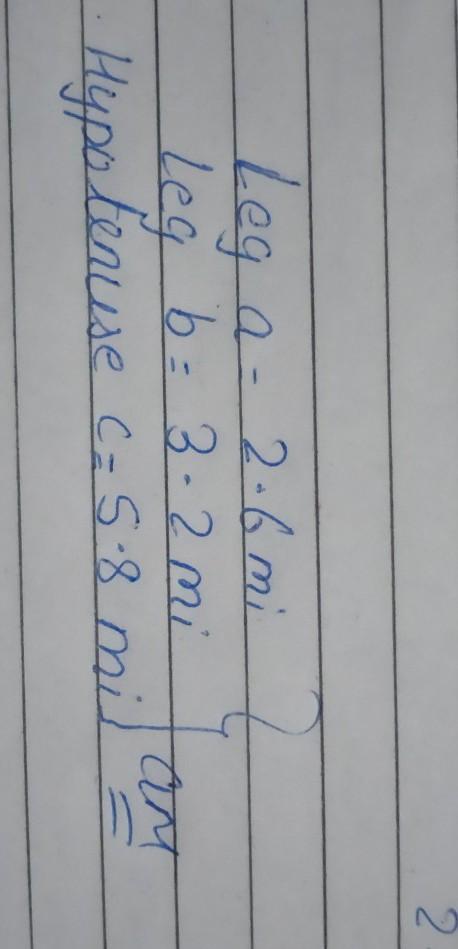 2
Leg a - 2.6 mi
Leg b = 3.2 mi
Hypotenuse c = 5.8 mi